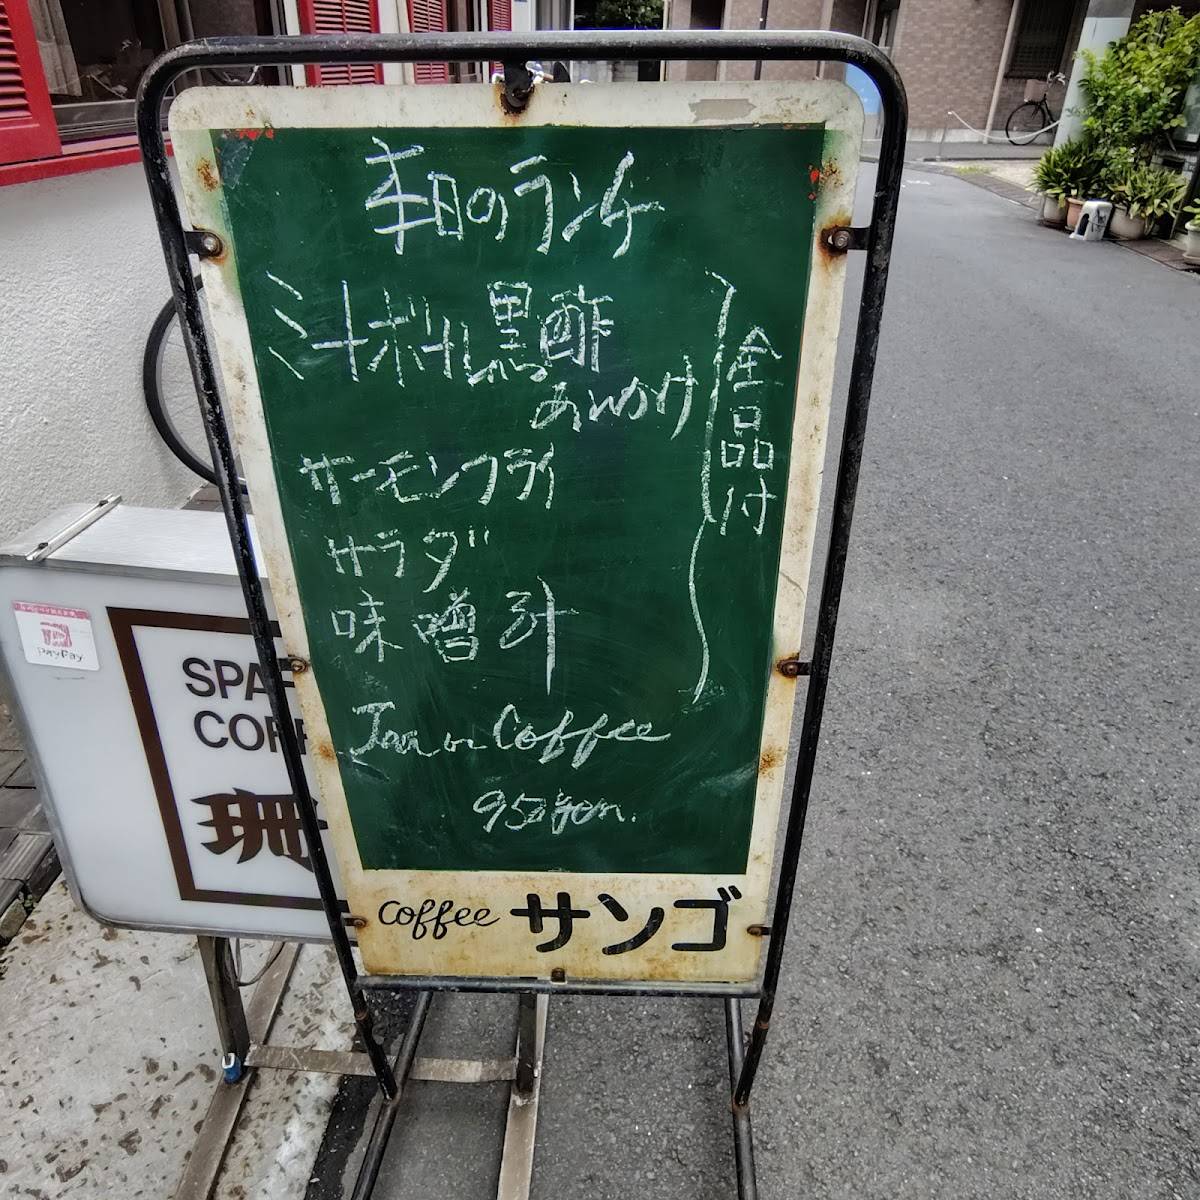 本日のランチ
ミートボール黒酢
あんかけ
サーモンフライ
サラダ
味噌汁
全品付
Tea or Coffee
950yen.
coffee サンゴ
PayPay
SPA
COF
珊